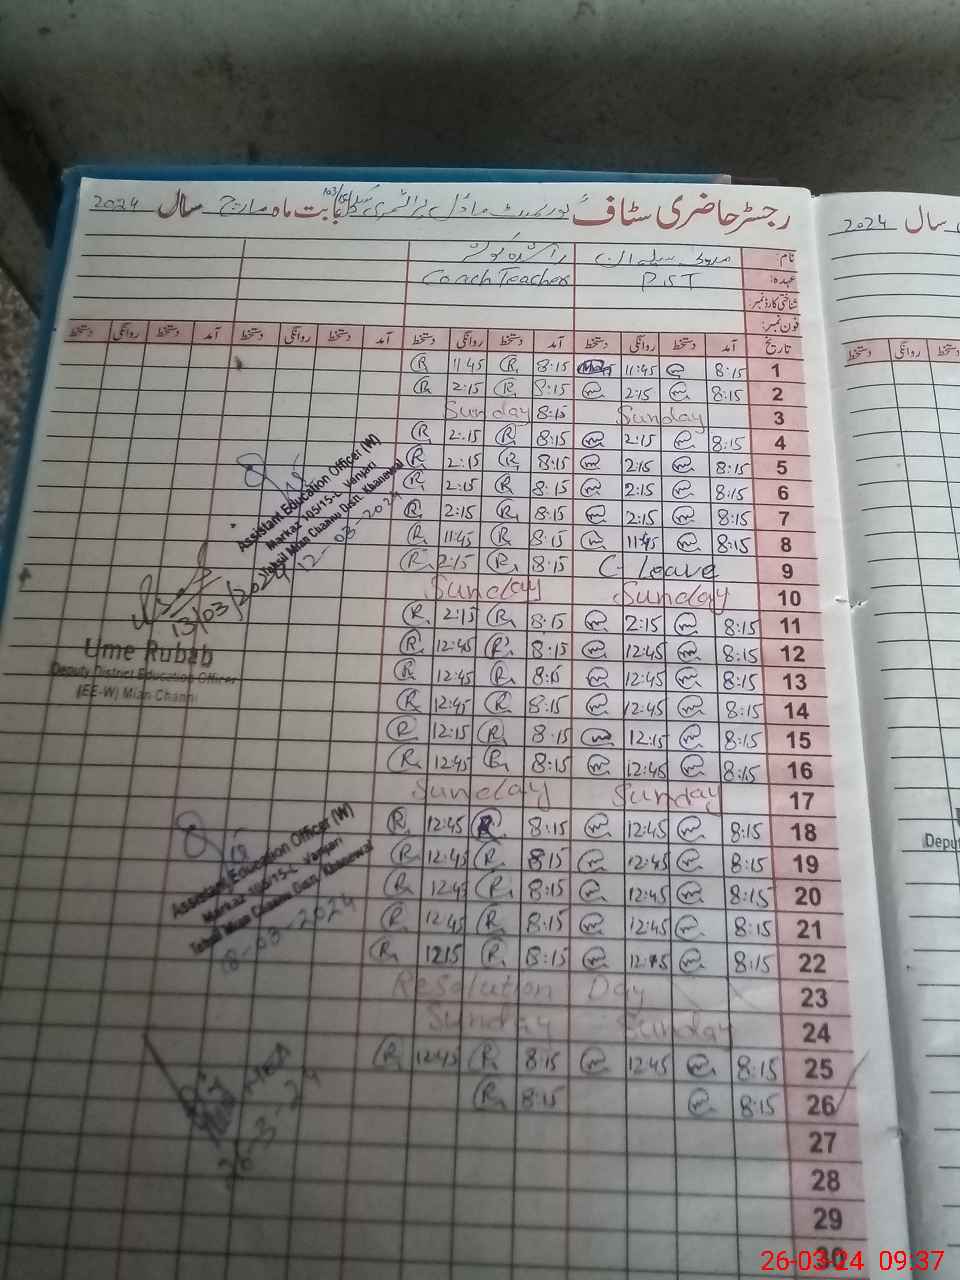 رجسٹر حاضری سٹاف گورنمنٹ ماڈل پرائمری سکول بابت ماہ مارچ سال 2024
2024 سال
نام:
عہدہ: PST Coach Teacher
شناختی کارڈ نمبر:
فون نمبر:
تاریخ آمد دستخط روانگی دستخط آمد دستخط روانگی دستخط آمد دستخط روانگی دستخط آمد دستخط روانگی دستخط
دستخط روانگی
1 8:15 11:45 8:15 R 11:45 R
2 8:15 2:15 8:15 R 2:15 R
3 Sunday 8:15 Sunday
4 8:15 2:15 8:15 R 2:15 R
5 8:15 2:15 8:15 R 2:15 R
6 8:15 2:15 8:15 R 2:15 R
7 8:15 2:15 8:15 R 2:15 R
8 8:15 11:45 8:15 R 11:45 R
9 C-Leave 8:15 R 2:15 R
10 Sunday Sunday
11 8:15 2:15 8:15 R 2:15 R
12 8:15 12:45 8:15 R 12:45 R
13 8:15 12:45 8:15 R 12:45 R
14 8:15 12:45 8:15 R 12:45 R
15 8:15 12:15 8:15 R 12:15 R
16 8:15 12:45 8:15 R 12:45 R
17 Sunday Sunday
18 8:15 12:45 8:15 R 12:45 R
19 8:15 12:45 8:15 R 12:45 R
20 8:15 12:45 8:15 R 12:45 R
21 8:15 12:45 8:15 R 12:45 R
22 8:15 12:15 8:15 R 12:15 R
23 Resolution Day
24 Sunday Sunday
25 8:15 12:45 8:15 R 12:45 R
26 8:15 8:15 R
27
28
29
30
Assistant Education Officer (W)
Markaz 105/15-L Vanjari
Tehsil Mian Channu Distt. Khanewal
12-03-2024
13/03/2024
Ume Rubab
Deputy District Education Officer
(EE-W) Mian Channu
Assistant Education Officer (W)
Markaz 105/15-L Vanjari
Tehsil Mian Channu Distt. Khanewal
18-03-2024
26-3-24
Deput
26-03-24 09:37